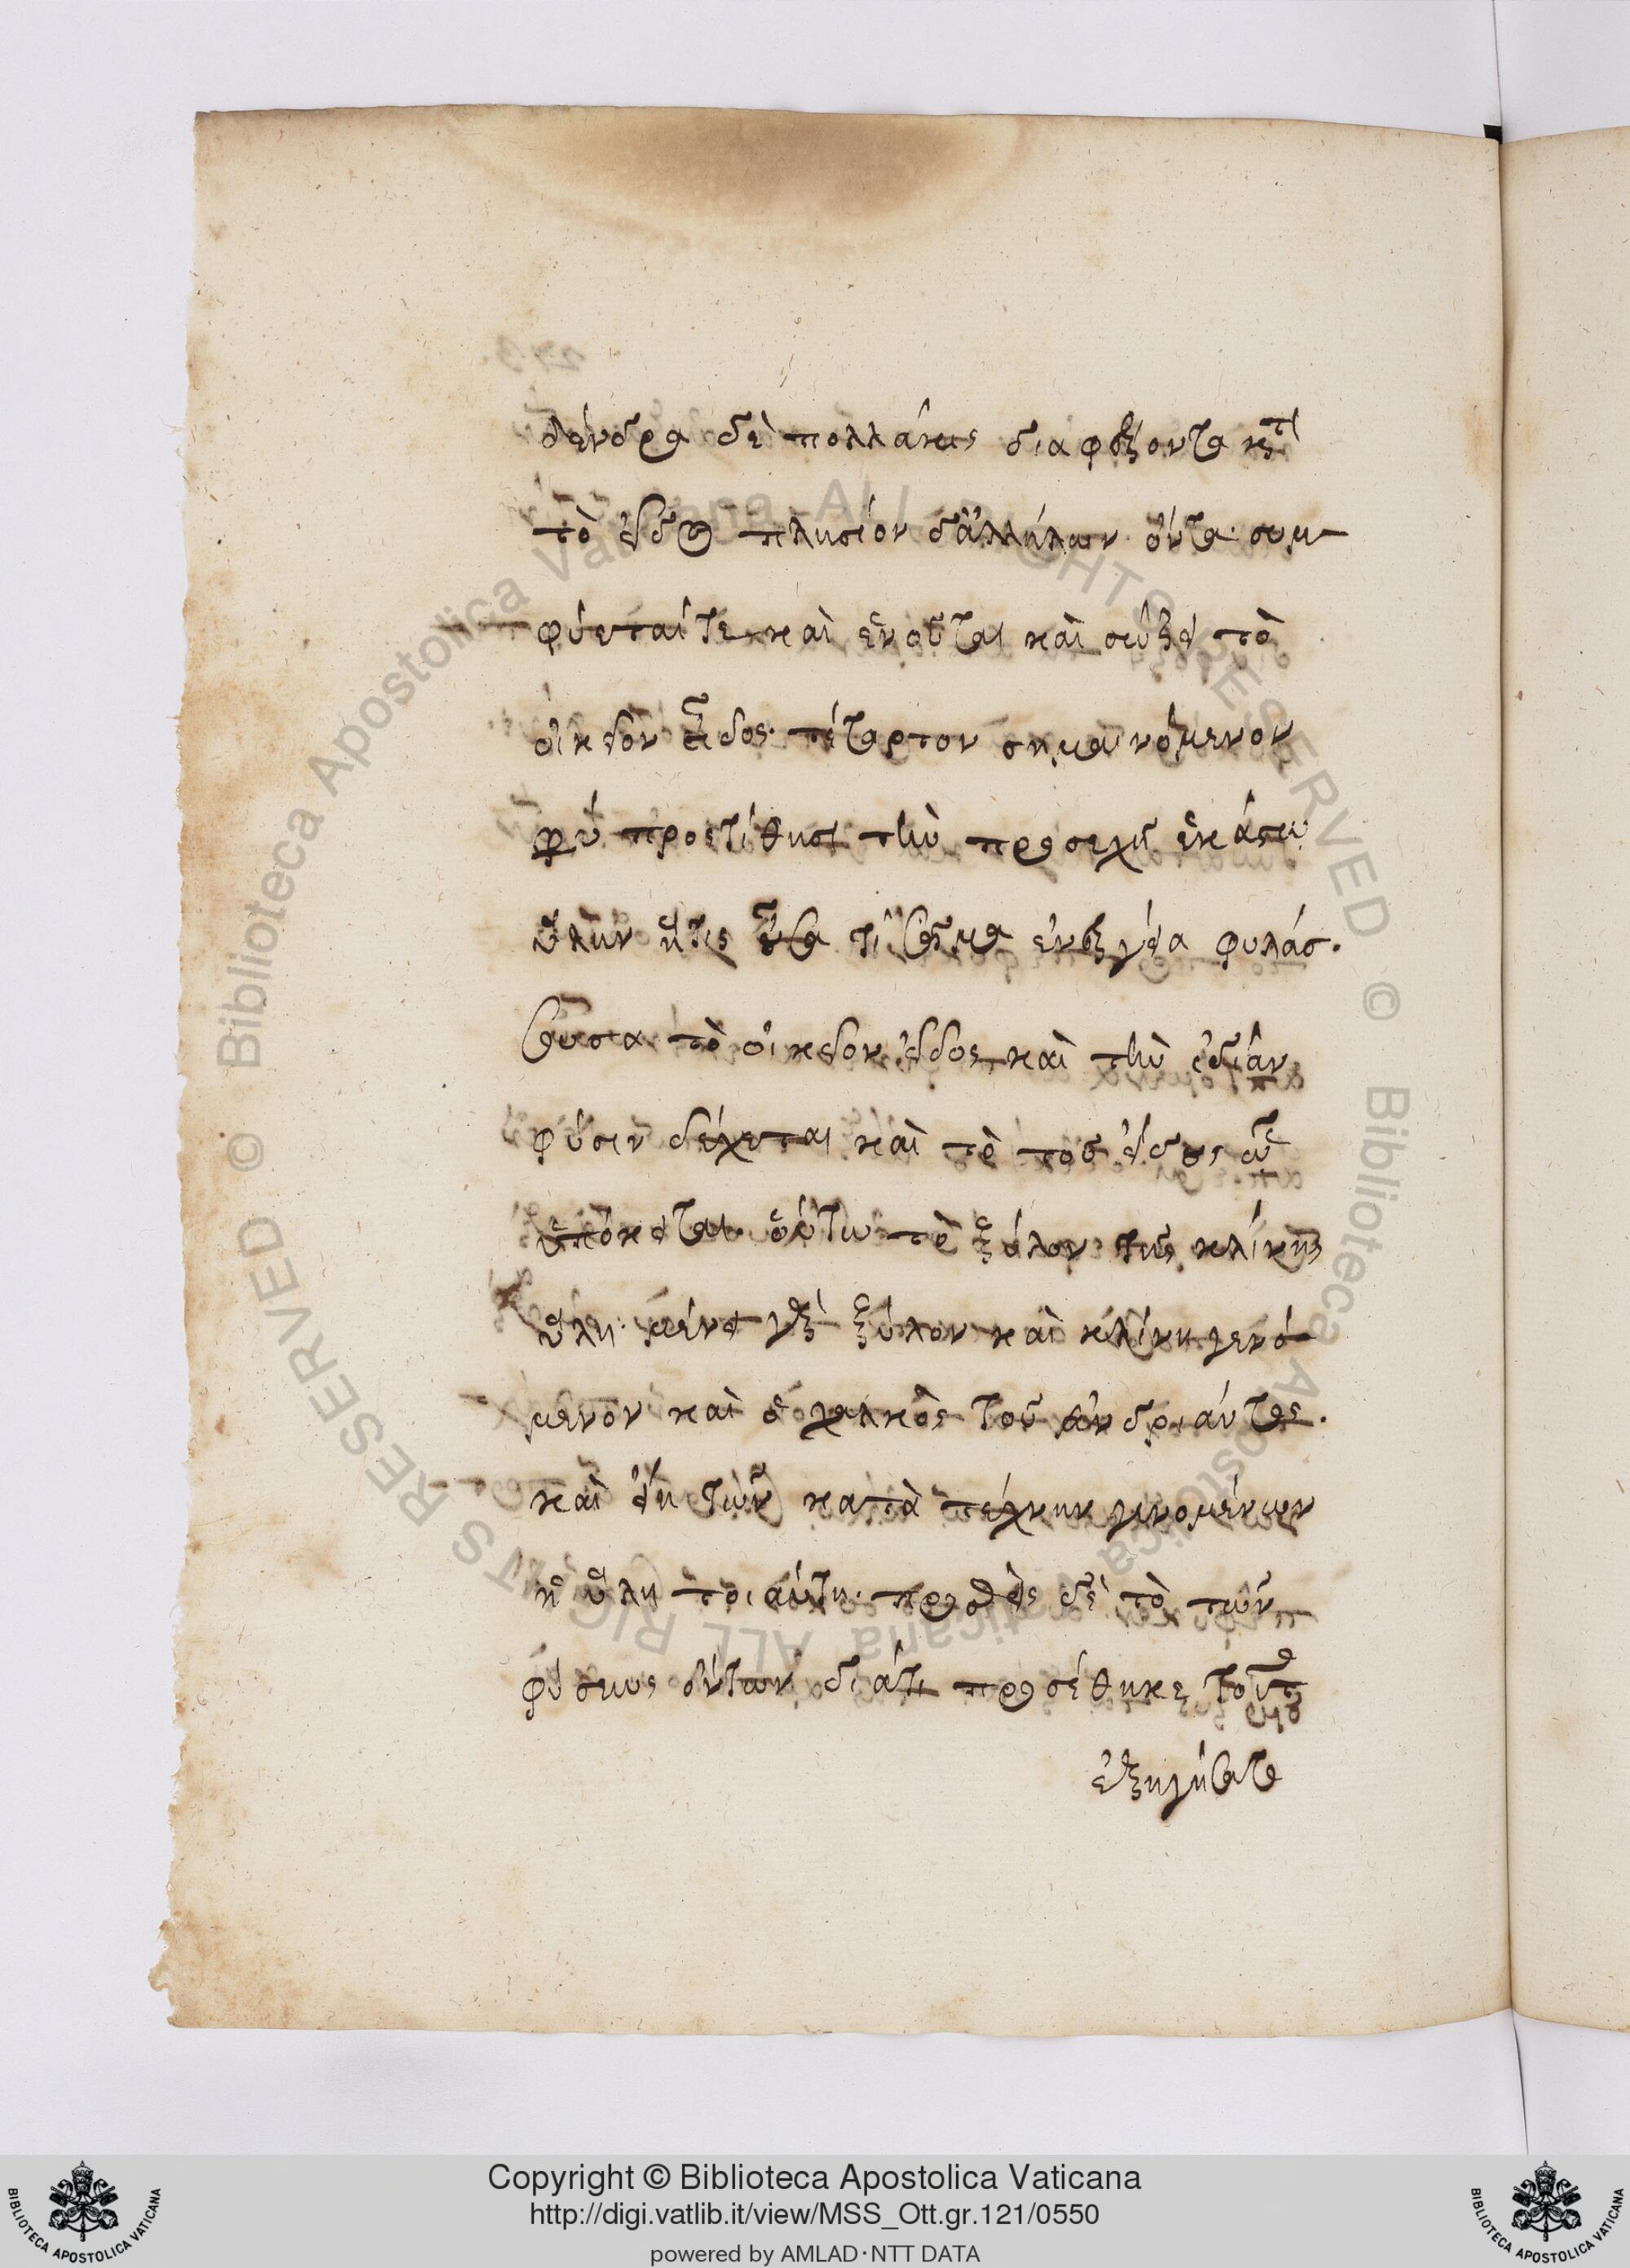 δένδρα δὲ πολλάκις διαφέροντα κατὰ
τὸ εἶδος πλησίον δ' ἀλλήλων ὄντα συμ-
φύεταί τε καὶ ἑνοῦται καὶ σώζει τὸ
οἰκεῖον εἶδος. τέταρτον σημαινόμενον
προστίθησι τὴν προσεχῆ ἑκάστω
ὕλην ἥτις ἐνεργεία φυλάτ-
τουσα τὸ οἰκεῖον εἶδος καὶ τὴν ἰδίαν
φύσιν δέχεται καὶ τὸ τοῦ εἴδους ᾧ
ὑπόκειται. οὕτω τὸ ξύλον τῆς κλίνης
ὕλη. μένει γὰρ ξύλον καὶ κλίνη γενό-
μενον καὶ ὁ χαλκὸς τοῦ ἀνδριάντος.
καὶ ἔτι τῶν κατὰ τέχνην γινομένων
ἡ ὕλη τοιαύτη. προσθεὶς δὲ τὸ τῶν
φύσεως ὄντων διάτι προσέθηκε τοῦτο
ἐξηγήσατο
© Biblioteca Apostolica Vaticana ALL RIGHTS RESERVED © Biblioteca Apostolica Vaticana ALL RIGHTS RESERVED
Copyright © Biblioteca Apostolica Vaticana
http://digi.vatlib.it/view/MSS_Ott.gr.121/0550
powered by AMLAD·NTT DATA
BIBLIOTECA APOSTOLICA VATICANA
BIBLIOTECA APOSTOLICA VATICANA